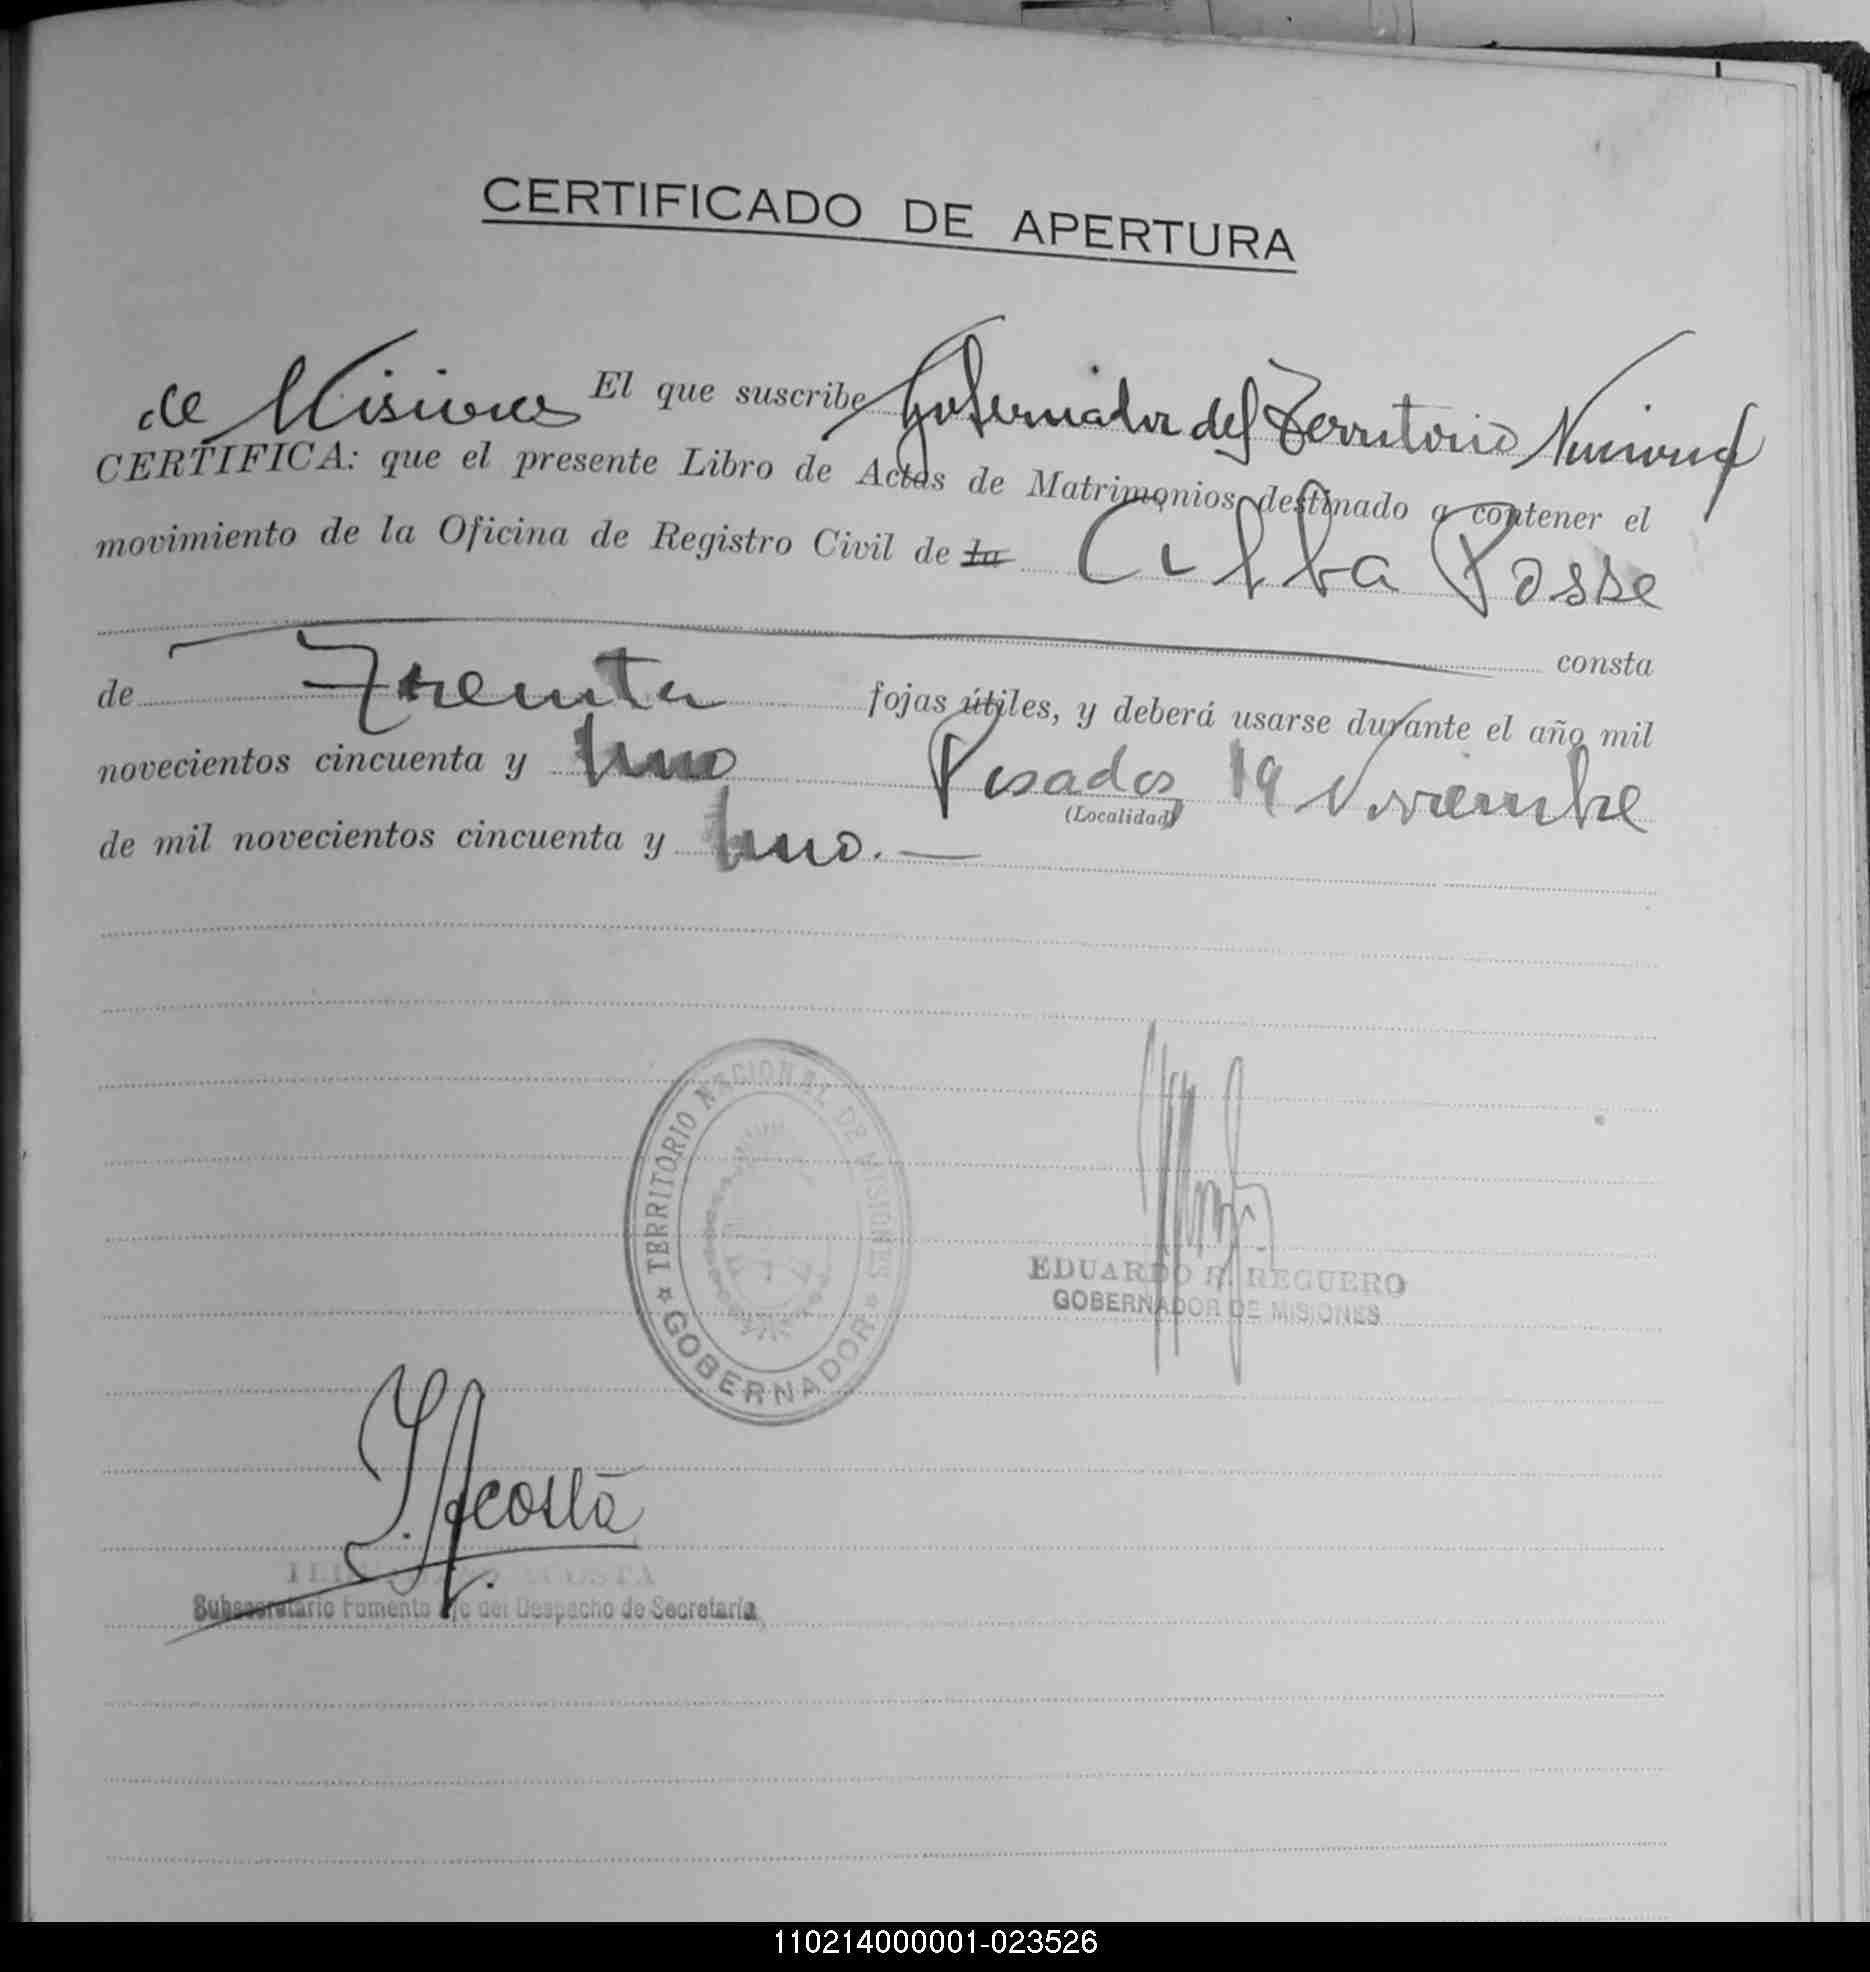 CERTIFICADO DE APERTURA
de Misiones El que suscribe Gobernador del Territorio Nacional
CERTIFICA: que el presente Libro de Actas de Matrimonios, destinado a contener el
movimiento de la Oficina de Registro Civil de la Colba Posse
consta
de Treinta fojas útiles, y deberá usarse durante el año mil
novecientos cincuenta y uno Posadas 19 Noviembre
(Localidad)
de mil novecientos cincuenta y uno. —
TERRITORIO NACIONAL DE MISIONES
GOBERNADOR
EDUARDO R. REGUERO
GOBERNADOR DE MISIONES
Acosta
ACOSTA
Subsecretario Fomento a/c del Despacho de Secretaría
110214000001-023526